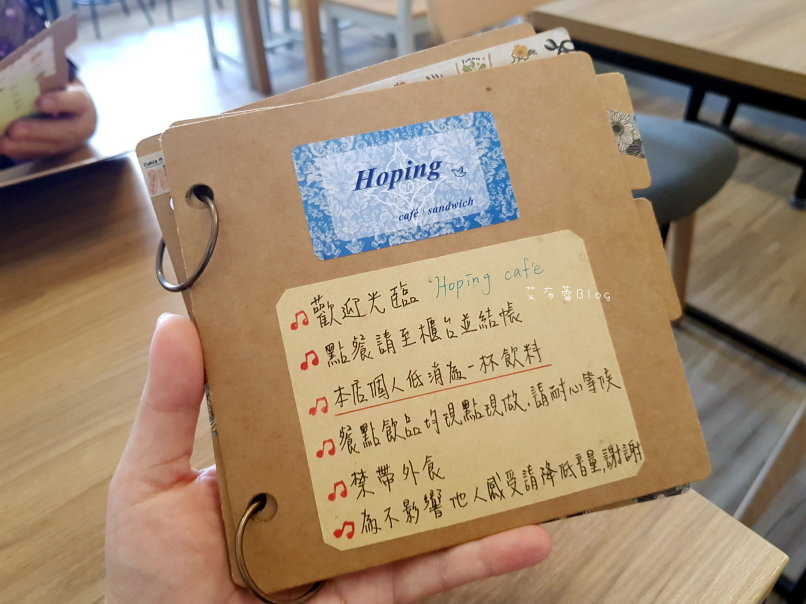 Hoping
café | sandwich
歡迎光臨 Hoping cafe
艾布蕾Blog
點餐請至櫃台並結帳
本店個人低消為一杯飲料
餐點飲品均現點現做.請耐心等候
禁帶外食
為不影響他人感受請降低音量,謝謝